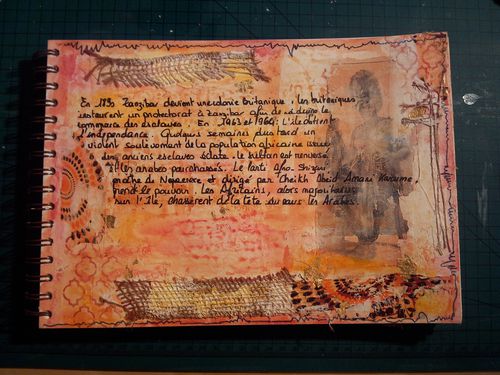 En 1890 Zanzibar devient une colonie britanique. Les britaniques
restaurent un protectorat à Zanzibar afin de réduire le
commerce des esclaves. En 1963 et 1964: L'île obtient
l'indépendance. Quelques semaines plus tard un
violent soulèvement de la population africaine issue
des anciens esclaves éclate. le sultan est renversé
et les arabes pourchassés. Le Parti Afro. Shirazi
proche de Nyerere et dirigé par Cheikh Abeid Amani Karume,
prend le pouvoir. Les Africains, alors majoritaires
sur l'île, chassèrent de la tête du pays les Arabes.